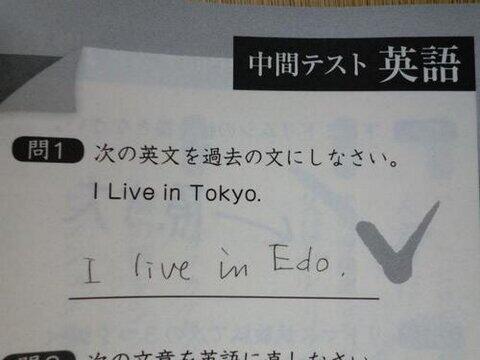 中間テスト 英語
問1 次の英文を過去の文にしなさい。
I Live in Tokyo.
I live in Edo.
次の文章を英語に直しなさい